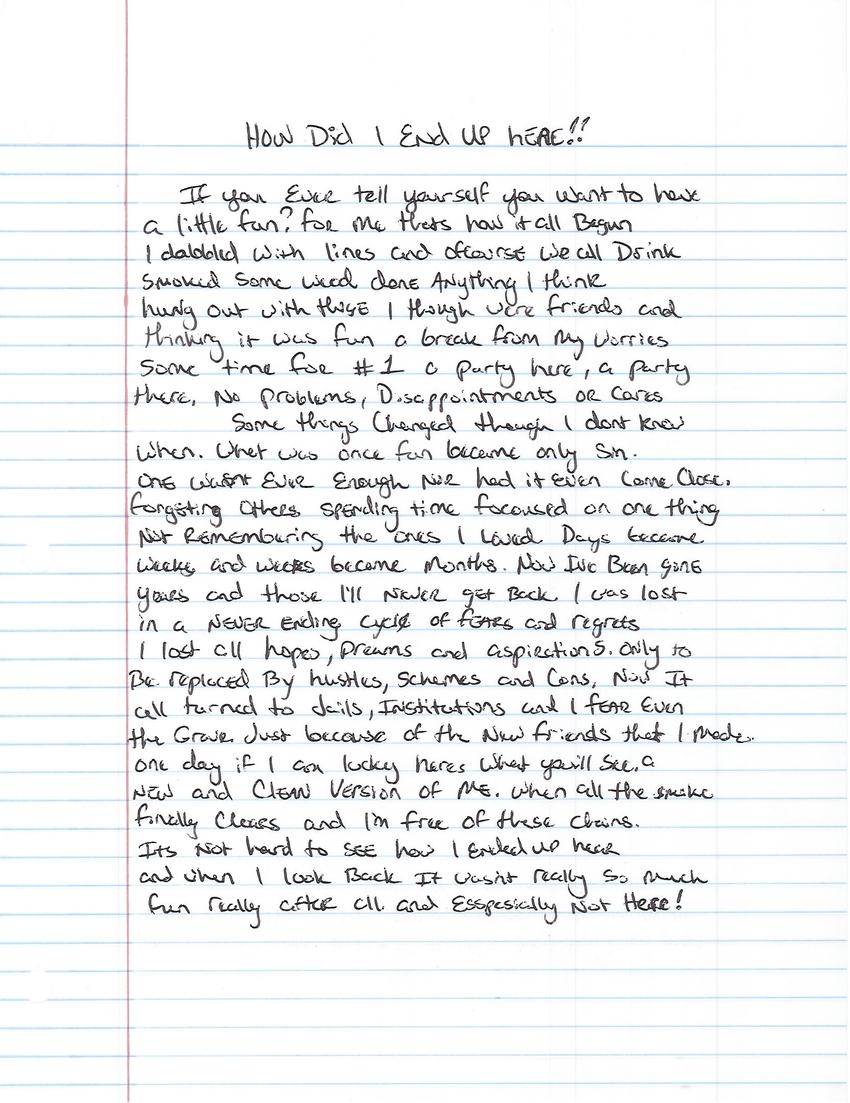 How Did I End Up hERE!!
If you Ever tell yourself you want to have
a little fun? for me thats how it all Begun
I dabbled with lines and ofcourse we all Drink
smoked some weed done Anything I think
hung out with those I though were friends and
thinking it was fun a break from my worries
some time for #1 a party here, a party
there, No problems, Disappointments or Cares
Some things Changed though I dont know
when. What was once fun became only Sin.
ONE wasnt Ever Enough Nor had it even Come Close.
forgeting Others spending time focoused on one thing
Not Remembering the ones I Loved Days became
weeks and weeks became Months. Now Ive Been gone
years and those I'll NEVER get Back I was lost
in a NEVER Ending Cycle of fears and regrets
I lost all hopes, Dreams and aspirations. Only to
Be replaced By hustles, Schemes and Cons, Now It
all turned to Jails, Institutions and I fear Even
the Grave. Just because of the New friends that I Made.
one day if I am lucky heres what you'll see. a
NEW and CLEAN Version of ME. when all the smoke
finally Clears and I'm free of these chains.
Its Not hard to SEE how I Ended up hear
and when I look Back It wasn't really so much
fun really after all and Esspesially Not Here!